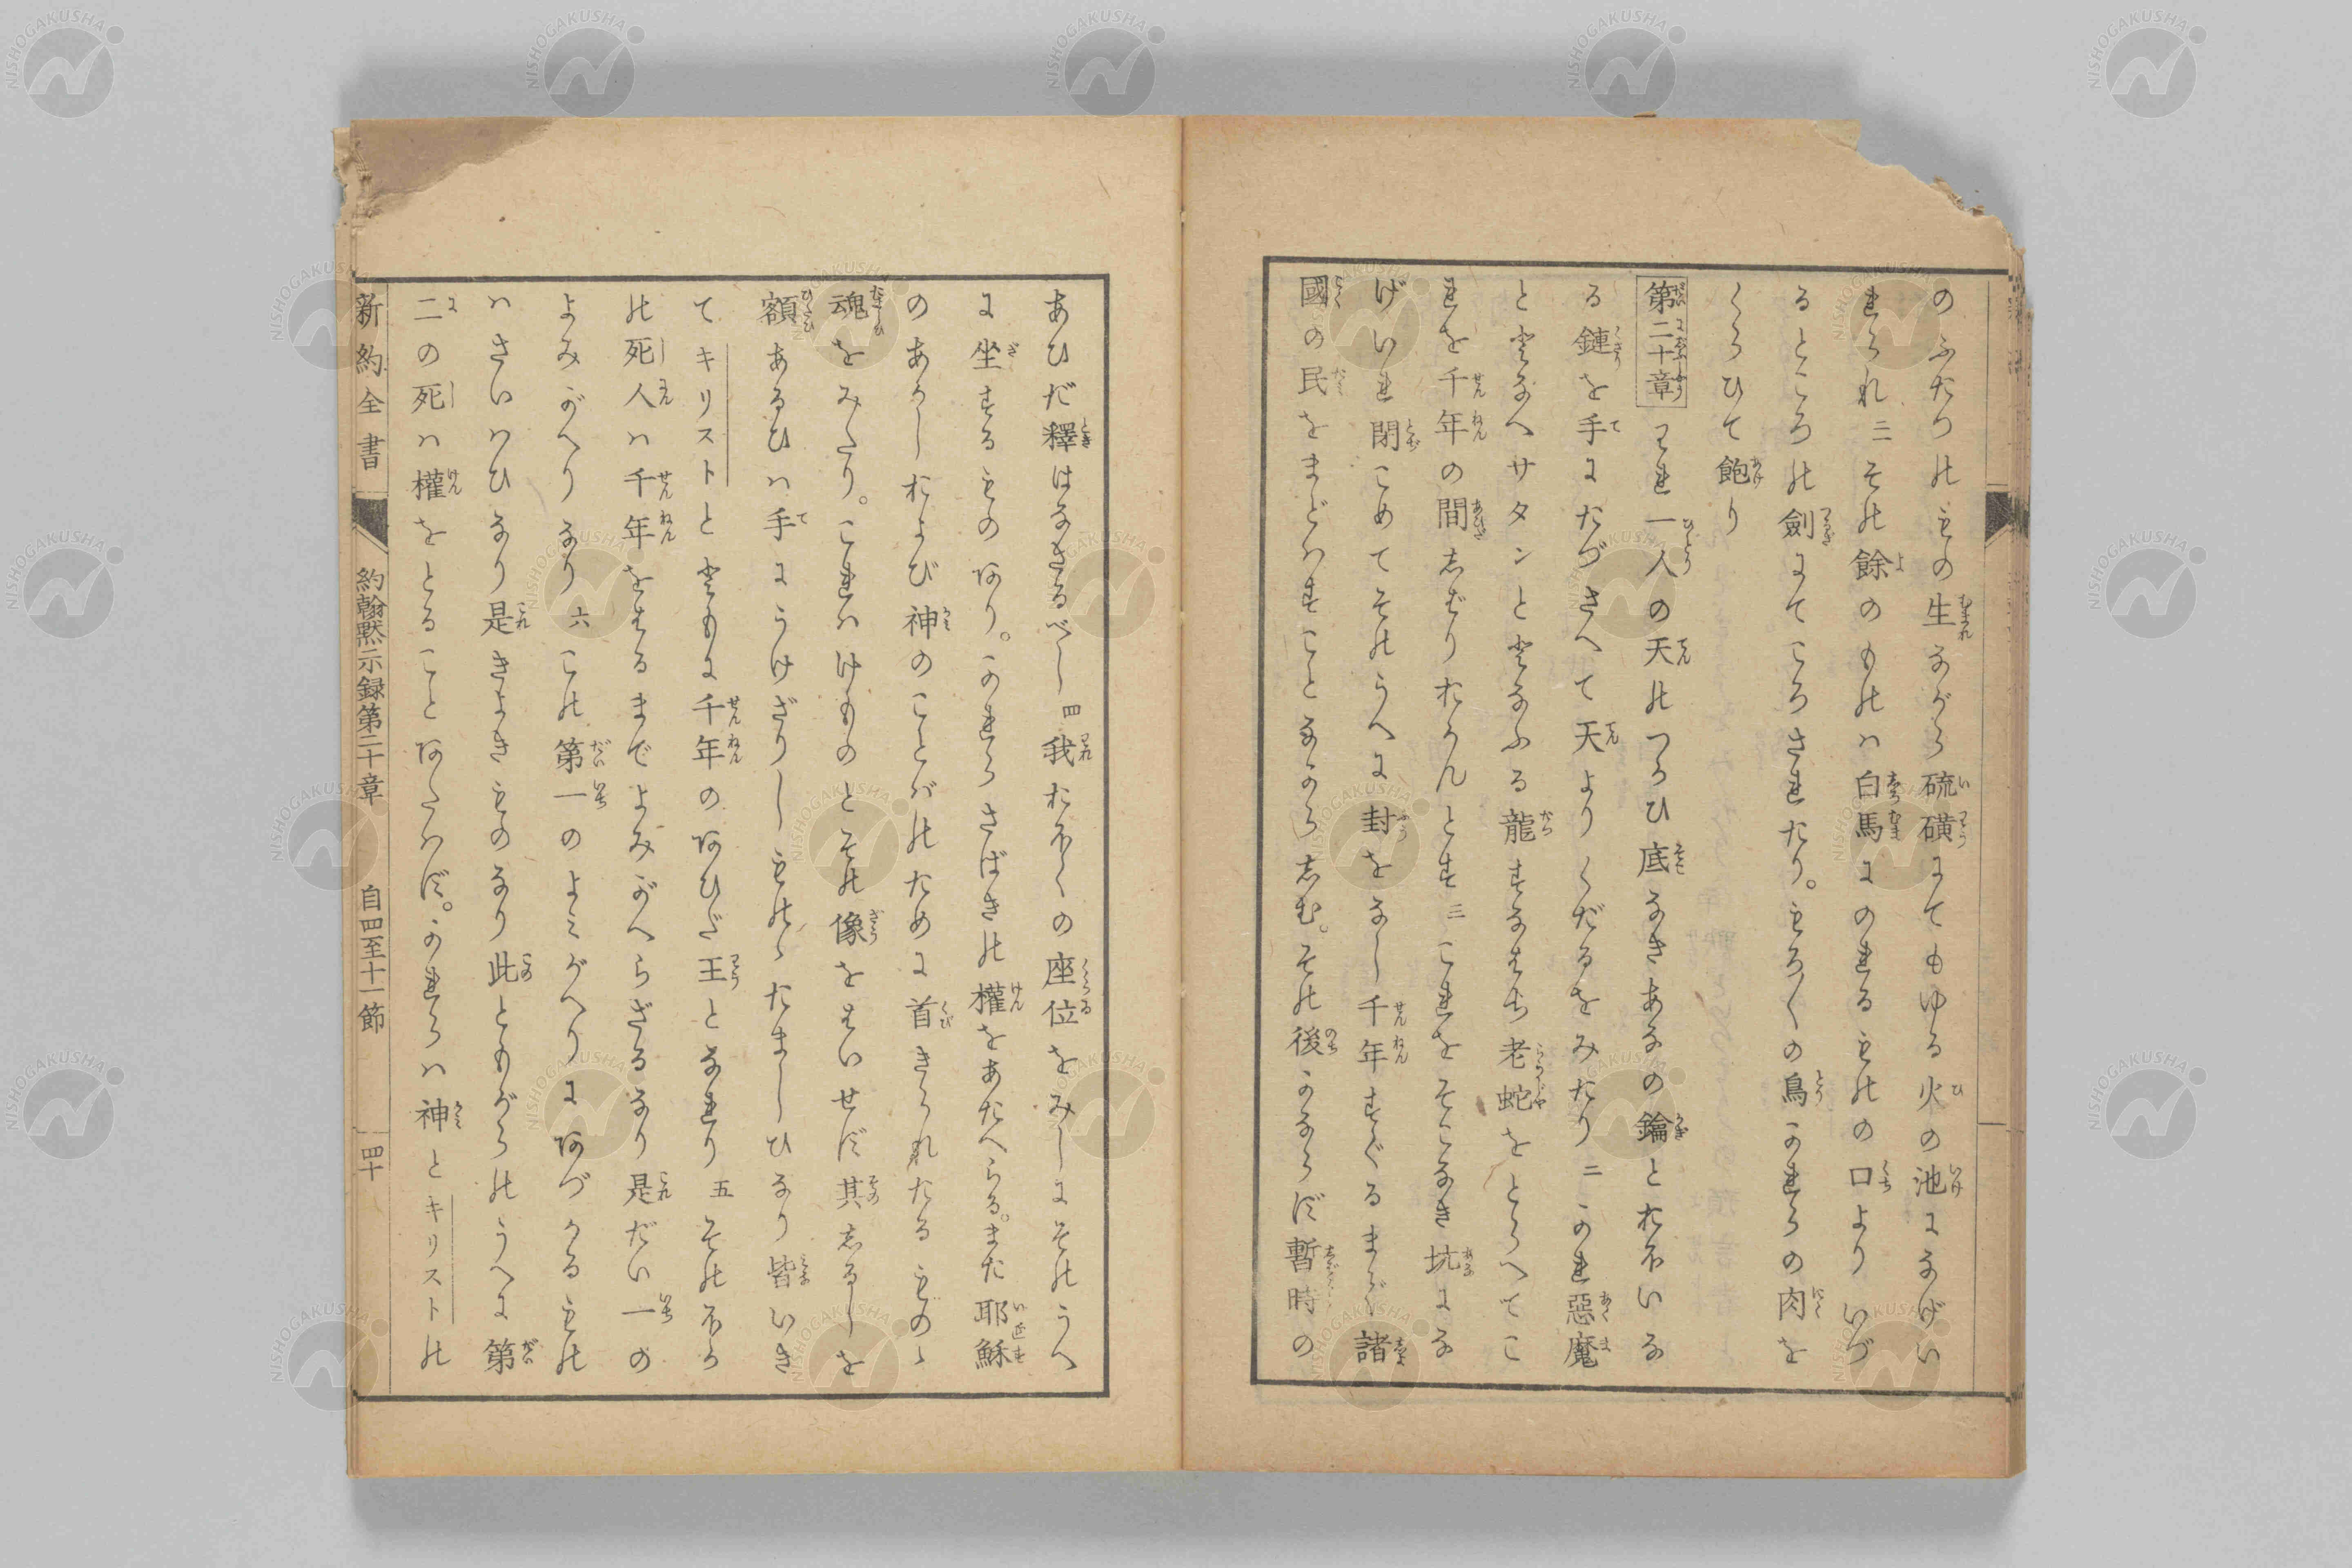 のふたつのもの生ながら硫磺にてもゆる火の池になげい
れられ二一その餘のものハ白馬にのれるものの口よりいづ
るところの劍にてころされたり。もろ〳〵の鳥かれらの肉を
くらひて飽り
第二十章 われ一人の天のつかひ底なきあなの鑰とおほいな
る鏈を手にたづさへて天よりくだるをみたり二かれ惡魔
ととなへサタンととなふる龍すなはち老蛇をとらへてこ
れを千年の間しばりおかんとす三これをそこなき坑にな
げいれ閉こめてそのうへに封をなし千年すぐるまで諸
國の民をまどハすことなからしむ。その後かならず暫時の
あひだ釋はなさるべし四我おほくの座位をみしにそのうへ
に坐するものあり。かれらさばきの權をあたへらる。また耶穌
のあかしおよび神のことばのために首きられたるものゝ
魂をみたり。これハけものとその像をはいせず其しるしを
額あるひハ手にうけざりしものゝたましひなり皆いき
てキリストとともに千年のあひだ王となれり五そのほか
の死人ハ千年ををはるまでよみがへらざるなり是だい一の
よみがへりなり六この第一のよみがへりにあづかるもの
ハさいハひなり是きよきものなり此ともがらのうへに第
二の死ハ權をとることあたハず。かれらハ神とキリストの
新約全書 約翰黙示録第二十章 自四至十一節 四十